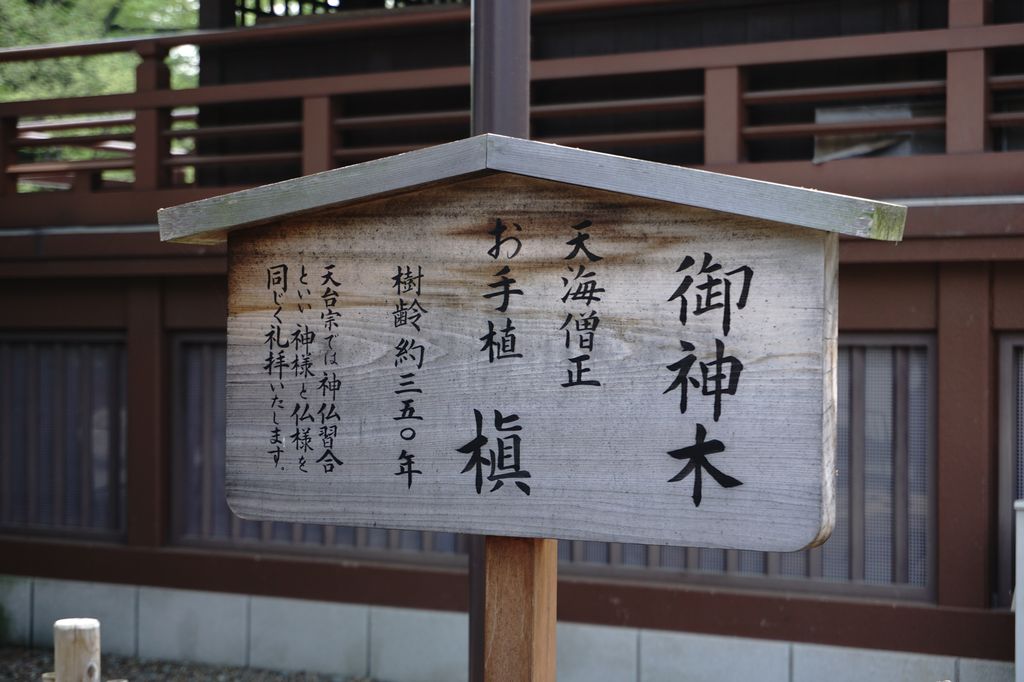 御神木
天海僧正
お手植 槇
樹齢約三五〇年
天台宗では神仏習合
といい神様と仏様を
同じく礼拝いたします。